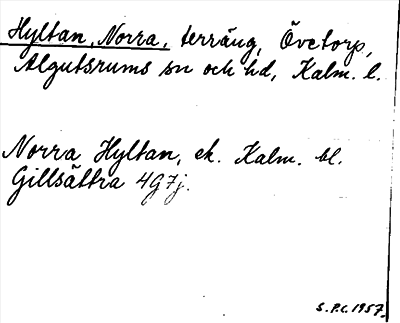 Hyltan, Norra, terräng, Övetorp,
Algutsrums sn och hd, Kalm. l.
Norra Hyltan, ek. Kalm. bl.
Gillsättra 4G7j.
S.P.C. 1957.